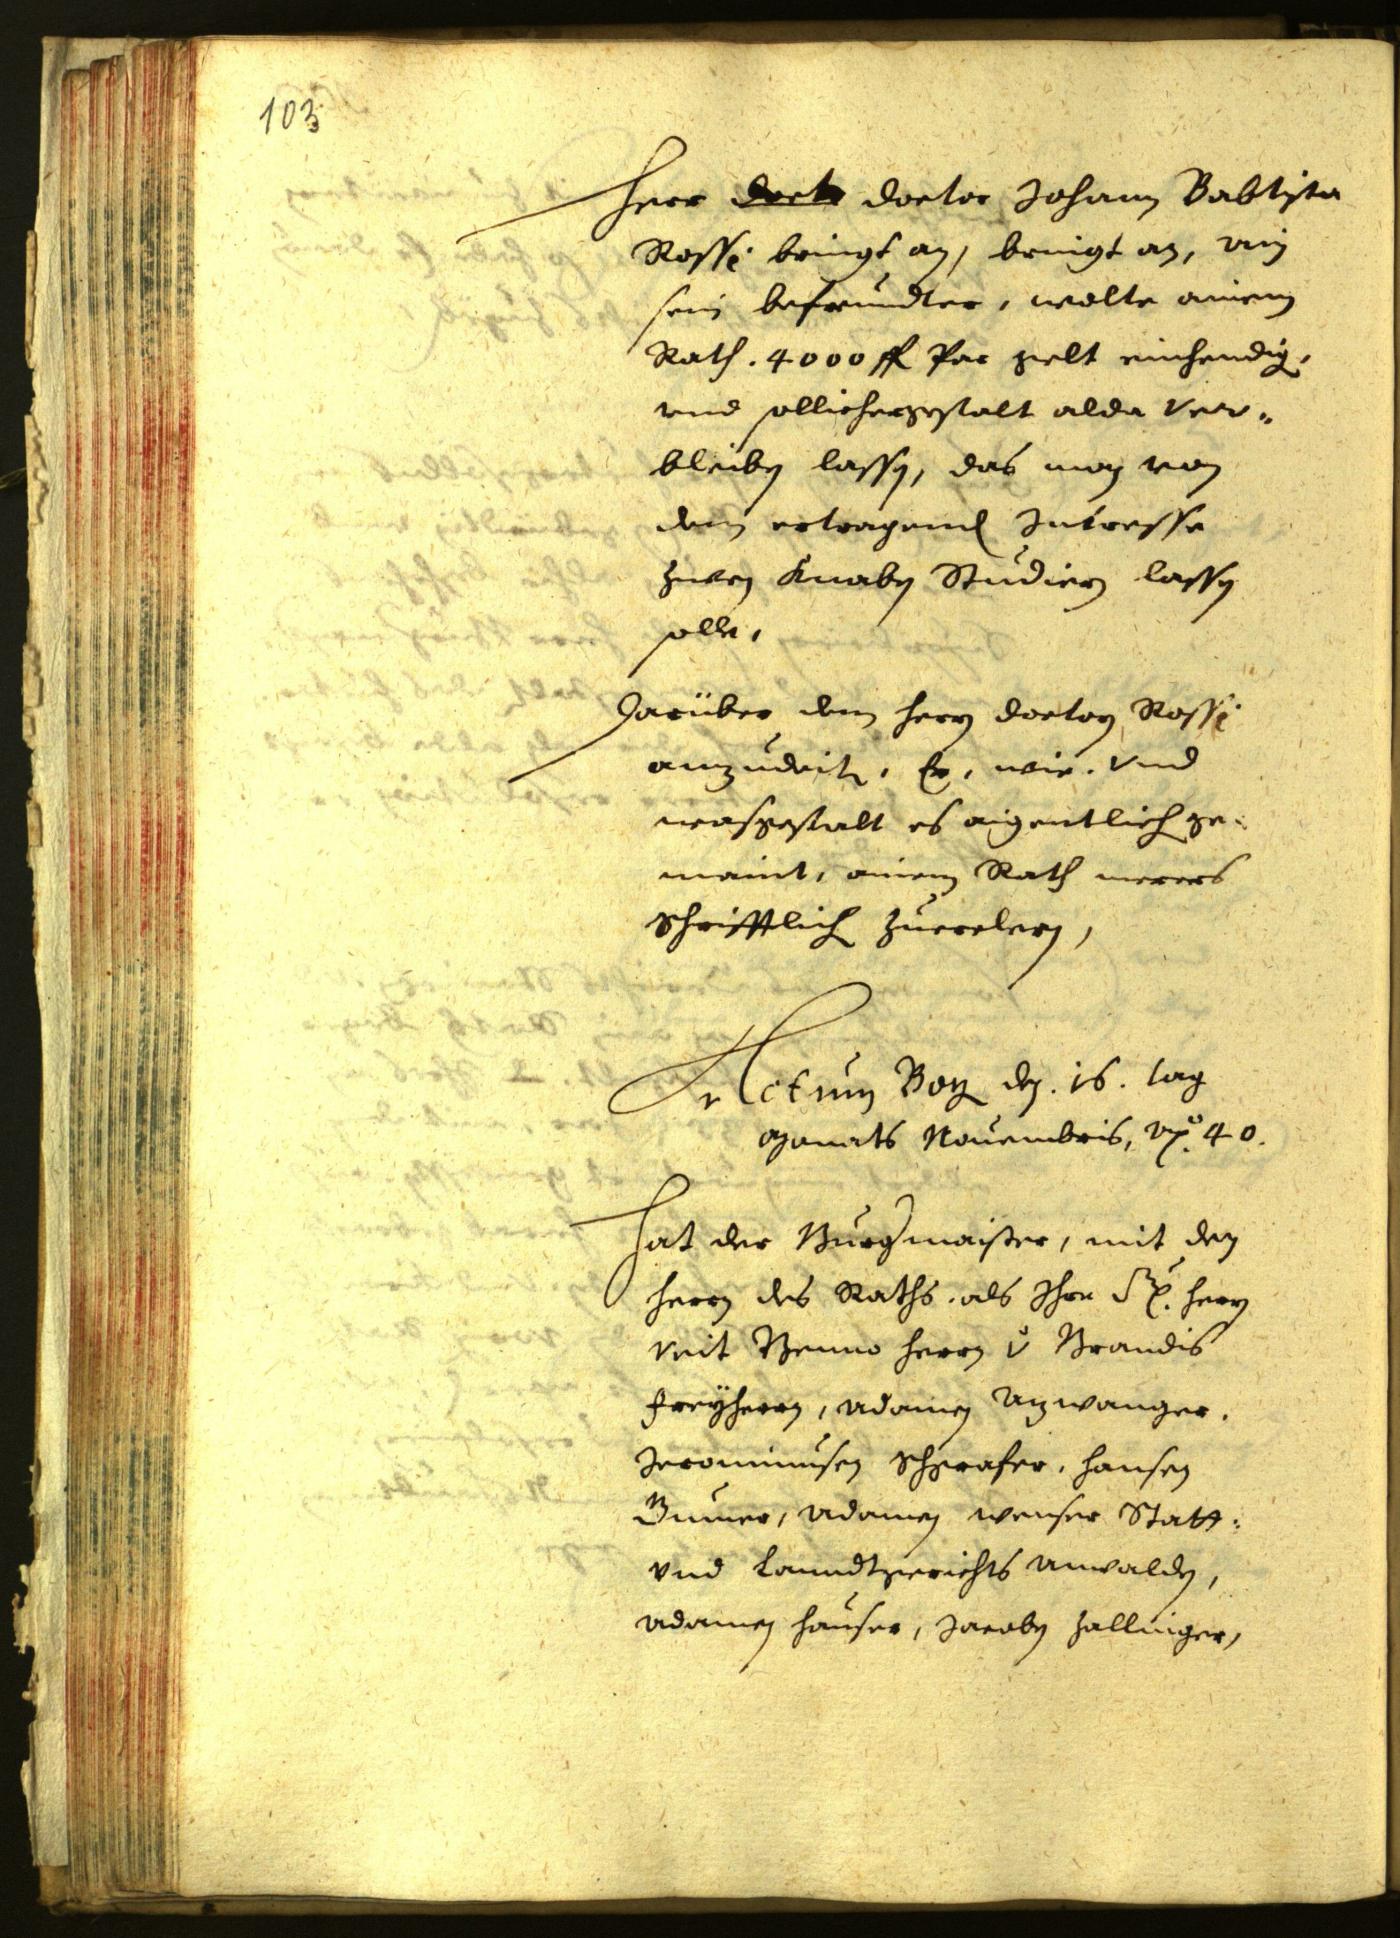 103
Herr doct doctor Johann Babtista
Rossi bringt an, bringt an, ain
sein befreundter, wolte ainem
Rath. 4000 fl Par gelt einhendig,
vnd sollichergestalt alda ver„
bleiben lassen, das man von
dem ertragend Interesse
zwen Knaben Studiern lassen
solle,
Darüber dem hern doctorn Rossi
anzudeiten, Er, wie. vnd
wasgestalt es aigentlich ge„
maint, ainem Rath merers
schrifftlich zuerclern,
Actum Bozen den. 16. tag
Monats Nouembris, Ao. 40.
Hat der Burgmaister, mit den
herrn des Raths. als Ihr Gn. hern
Veit Benno herrn v Brandis
freyherrn, Adamen Azwanger.
Jeronimusen Schgrafer, Hansen
Gumer, Adamen Wenser Statt„
vnd Lanndtgerichts Anwalden,
Adamen Hauser, Jacoben Zallinger,